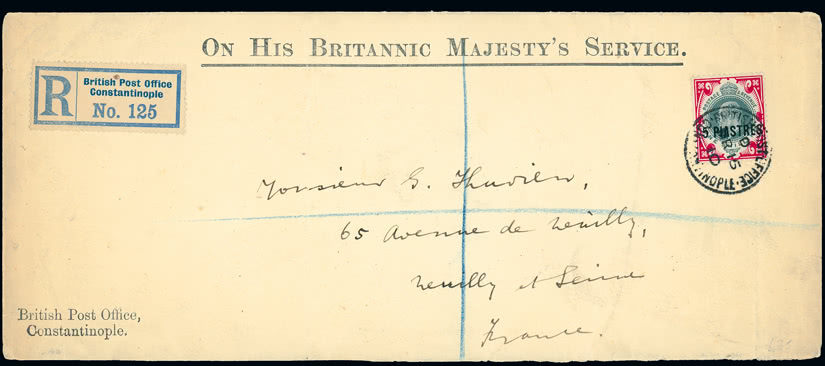 ON HIS BRITANNIC MAJESTY'S SERVICE.
R
British Post Office
Constantinople
No. 125
POSTAGE REVENUE
5 PIASTRES
BRITISH POST OFFICE
CONSTANTINOPLE
Monsieur G. Thuvien,
65 Avenue de Neuilly,
Neuilly s/ Seine
France.
British Post Office,
Constantinople.